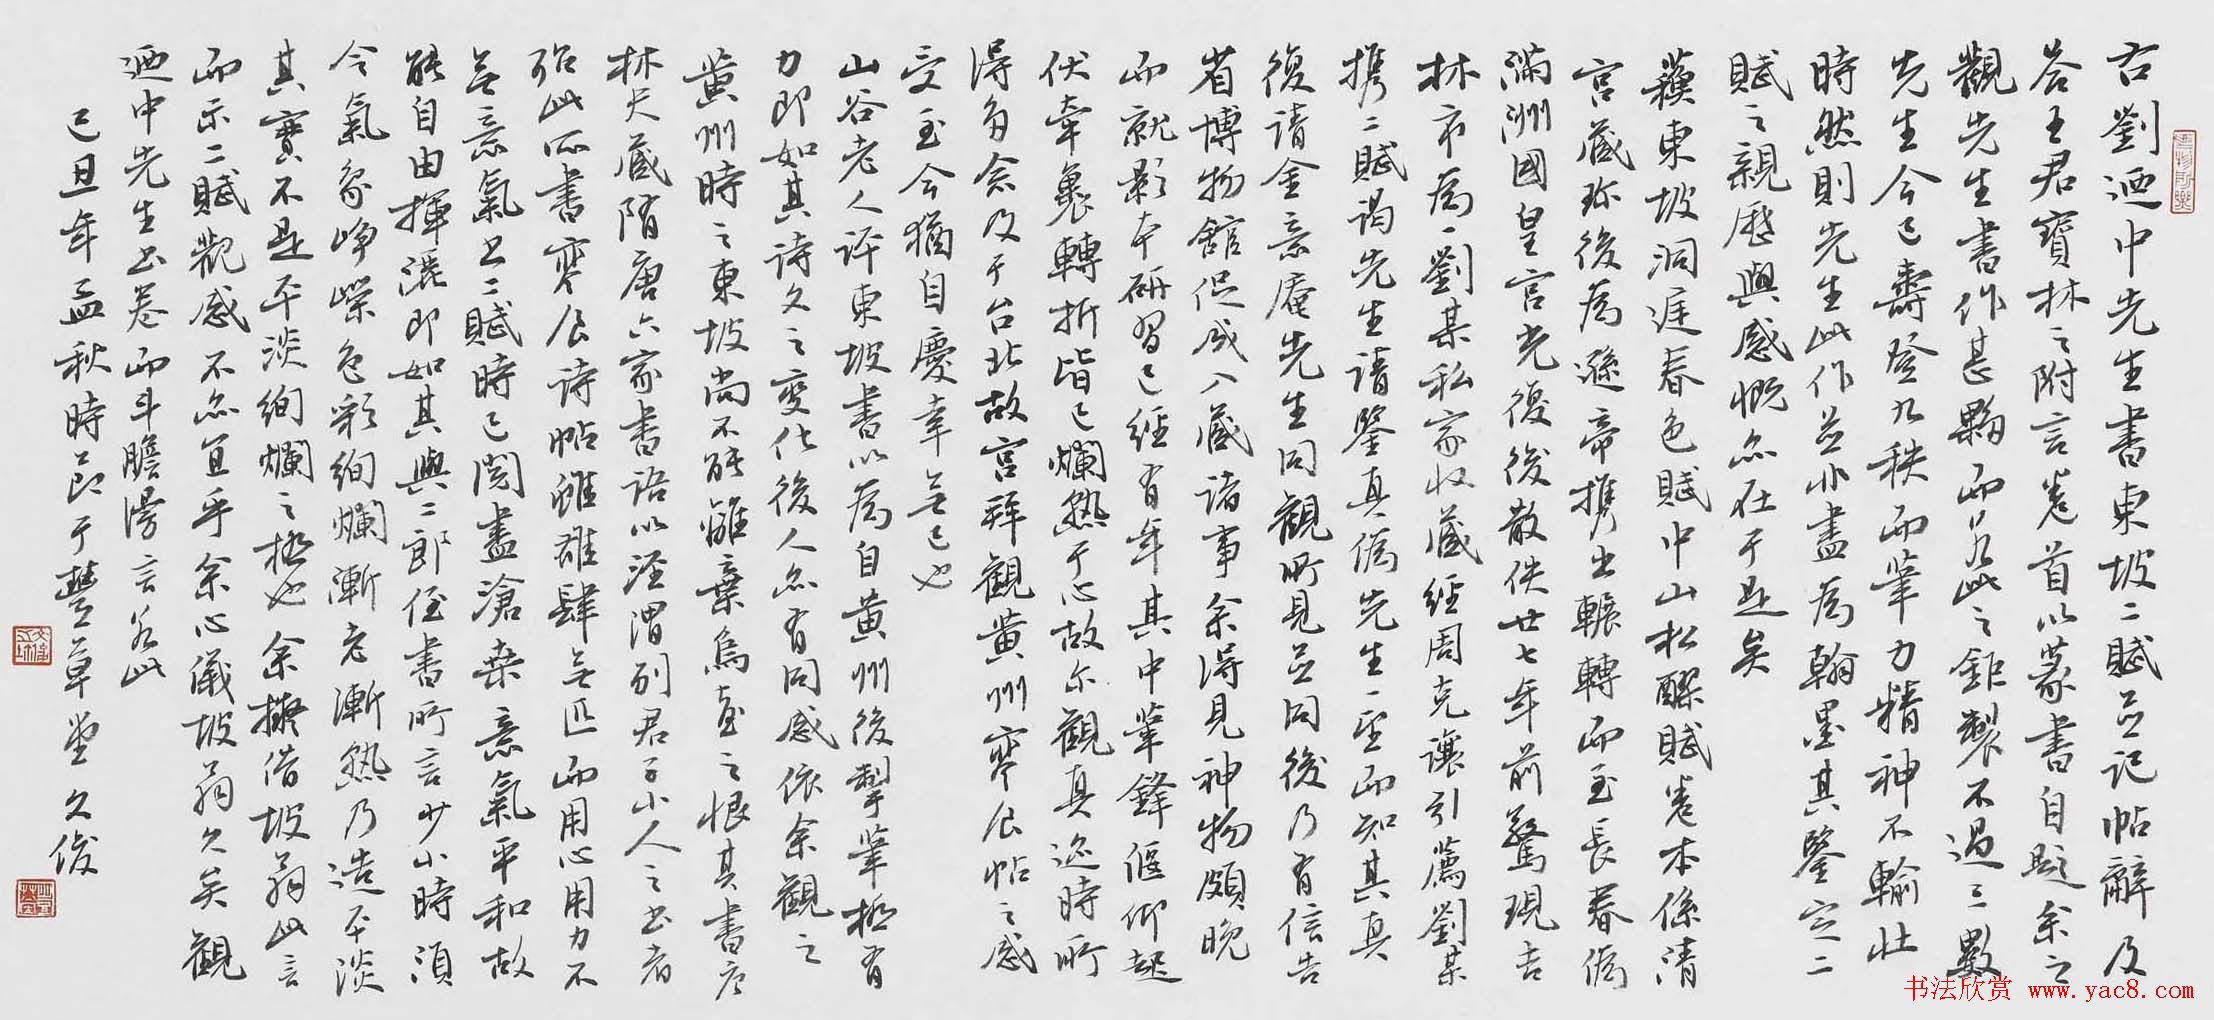 右劉迺中先生書東坡二賦並記帖辭及
答王君寶林之附言卷首以篆書自題余之
觀先生書作甚夥而如此之鉅製不過三數
先生今已壽登九秩而筆力精神不輸壯
時然則先生此作並非盡為翰墨其鑒定二
賦之親歷與感慨亦在于是矣
蘇東坡洞庭春色賦中山松醪賦卷本係清
宮藏珍後為遜帝攜出輾轉而至長春偽
滿洲國皇宮光復後散佚廿七年前驚現吉
林市為一劉某私家收藏經周克讓引薦劉某
攜二賦謁先生請鑒真偽先生一望而知其真
復請金意庵先生同觀所見並同後乃有信告
省博物館促成入藏諸事余得見神物頗晚
而就影本研習已經有年其中筆鋒偃仰起
伏牽裹轉折皆已爛熟于心故亦觀真迹時所
得多念及于台北故宮拜觀黃州寒食帖之感
受至今猶自慶幸無已也
山谷老人評東坡書以為自黃州後掣筆極有
力即如其詩文之變化後人亦有同感依余觀之
黃州時之東坡尚不能離棄烏臺之恨其書唐
林夫藏隋唐六家書語以涇渭別君子小人之書者
殆此而書寒食詩帖雖雄肆無匹而用心用力不
無意氣書二賦時已閱盡滄桑意氣平和故
能自由揮灑即如其與二郎侄書所言少小時須
令氣象崢嶸色彩絢爛漸老漸熟乃造平淡
其實不是平淡絢爛之極也余擬借坡翁此言
而示二賦觀感不亦宜乎余心儀坡翁久矣觀
迺中先生書卷而斗膽漫言若此
己丑年孟秋時節于豐草堂文俊
书法欣赏 www.yac8.com